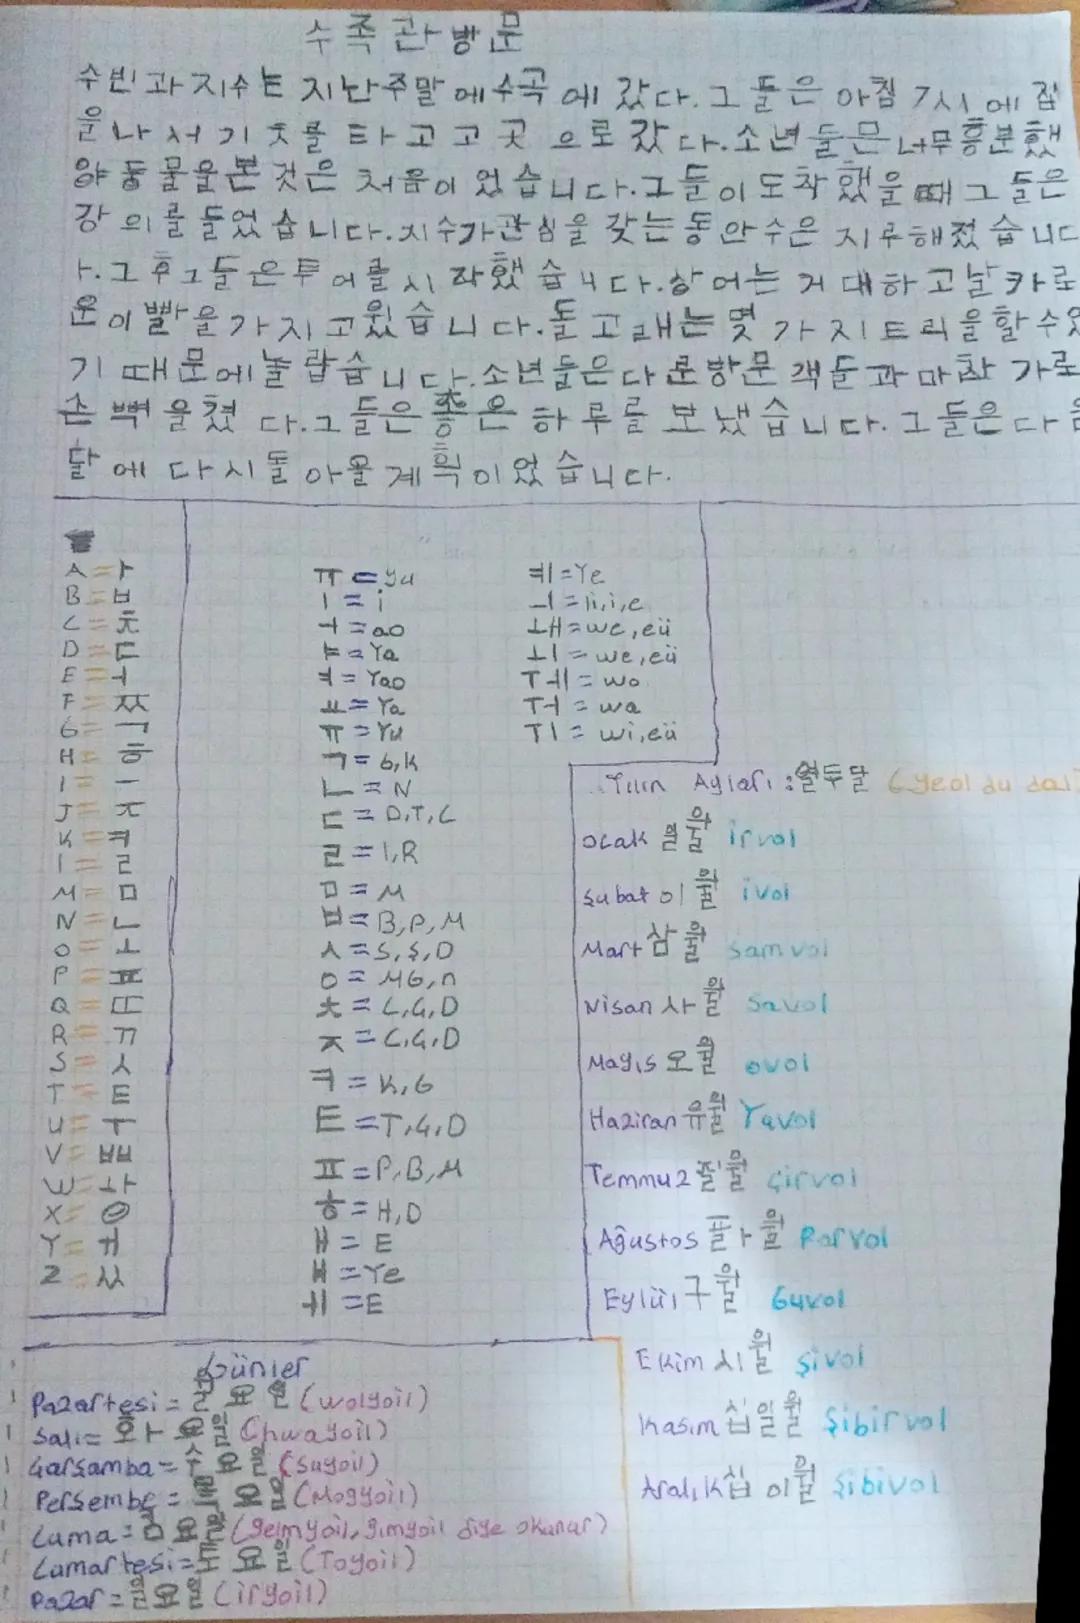 수족관 방문
수빈과 지수는 지난 주말에 수족에 갔다. 그들은 아침 7시에 집
을 나서 기차를 타고 고곳으로 갔다. 소년들은 너무 흥분했
양 동물을 본 것은 처음이었습니다. 그들이 도착했을 때 그들은
강의를 들었습니다. 지수가 관심을 갖는 동안 수은 지루해졌습니다
ㅏ. 그 후 그들은 투어를 시작했습니다. 상어는 거대하고 날카로
운 이빨을 가지고 있습니다. 돌고래는 몇 가지 트릭을 할 수 있
기 때문에 놀랍습니다. 소년들은 다른 방문객들과 마찬가로
손뼉을 쳤다. 그들은 좋은 하루를 보냈습니다. 그들은 다음
달에 다시 돌아올 계획이었습니다.
A = ㅏ
B = ㅂ
C = ㅊ
D = ㄷ
E = ㅓ
F = ㅉ
G = ㄱ
H = ㅎ
I = ㅡ
J = ㅈ
K = ㅋ
l = ㄹ
M = ㅁ
N = ㄴ
O = ㅗ
P = ㅍ
Q = ㄸ
R = ㄲ
S = ㅅ
T = ㅌ
U = ㅜ
V = ㅃ
W = ㅘ
X =
Y = ㅟ
Z = ㅆ
ㅠ = yu
ㅣ = i
ㅓ = ao
ㅑ = Ya
ㅕ = Yao
ㅛ = Ya
ㅠ = Yu
ㄱ = G,K
ㄴ = N
ㄷ = D,T,C
ㄹ = l,R
ㅁ = M
ㅂ = B,P,M
ㅅ = S,Ş,D
ㅇ = MG,n
ㅊ = C,G,D
ㅈ = C,G,D
ㅋ = K,G
ㅌ = T,G,D
ㅍ = P,B,M
ㅎ = H,D
ㅐ = E
ㅒ = Ye
ㅔ = E
ㅖ = Ye
ㅢ = ıi,i,e
ㅙ = we,eü
ㅚ = we,eü
ㅞ = wo
ㅝ = wa
ㅟ = wi,eü
Yılın Ayları : 열두달 (yeol du dal
Ocak 일월 irvol
Şubat 이월 ivol
Mart 삼월 Samvol
Nisan 사월 Savol
Mayıs 오월 ovol
Haziran 유월 Yavol
Temmuz 칠월 Çirvol
Ağustos 팔월 Parvol
Eylül 구월 Guvol
Ekim 시월 şivol
Kasım 십일월 Şibirvol
Aralık 십이월 Şibivol
Günler
Pazartesi = 월요일 (wolyoil)
Salı = 화요일 (hwayoil)
Çarşamba = 수요일 (Suyoil)
Perşembe = 목요일 (Mogyoil)
Cuma = 금요일 (geimyoil, gımyoil diye okunur)
Cumartesi = 토요일 (Toyoil)
Pazar = 일요일 (iryoil)